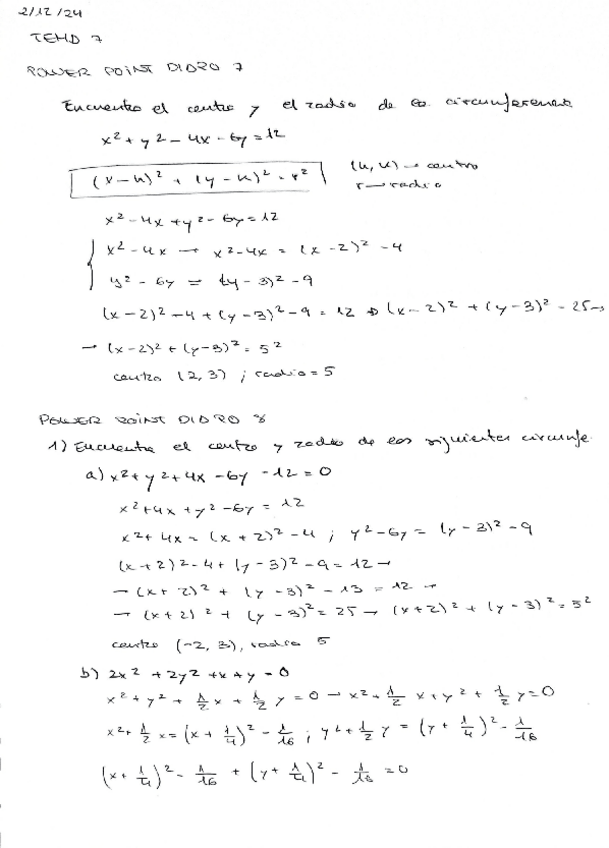 2/12/24
TEMA 7
POWER POINT DIDRO 7
Encuentra el centro y el radio de la circunferencia
x² + y² - 4x - 6y = 12
(x - h)² + (y - k)² = r²
(h, k) → centro
r → radio
x² - 4x + y² - 6y = 12
x² - 4x → x² - 4x = (x - 2)² - 4
y² - 6y = (y - 3)² - 9
(x - 2)² - 4 + (y - 3)² - 9 = 12 ⇒ (x - 2)² + (y - 3)² = 25 →
→ (x - 2)² + (y - 3)² = 5²
centro (2, 3) ; radio = 5
POWER POINT DIDRO 8
1) Encuentra el centro y radio de las siguientes circunfe
a) x² + y² + 4x - 6y - 12 = 0
x² + 4x + y² - 6y = 12
x² + 4x = (x + 2)² - 4 ; y² - 6y = (y - 3)² - 9
(x + 2)² - 4 + (y - 3)² - 9 = 12 →
→ (x + 2)² + (y - 3)² - 13 = 12 →
→ (x + 2)² + (y - 3)² = 25 → (x + 2)² + (y - 3)² = 5²
centro (-2, 3), radio 5
b) 2x² + 2y² + x + y = 0
x² + y² + 1/2 x + 1/2 y = 0 → x² + 1/2 x + y² + 1/2 y = 0
x² + 1/2 x = (x + 1/4)² - 1/16 ; y² + 1/2 y = (y + 1/4)² - 1/16
(x + 1/4)² - 1/16 + (y + 1/4)² - 1/16 = 0